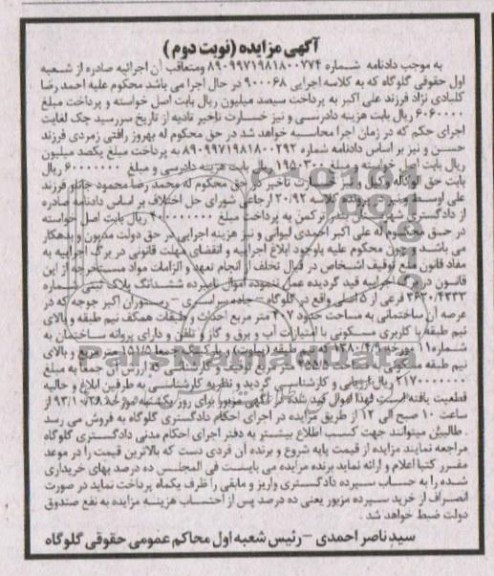 آگهی مزایده (نوبت دوم)
به موجب دادنامه شماره ۸۹۰۹۹۷۱۹۸۱۸۰۰۷۷۴ ومتعاقب آن اجرائیه صادره از شعبه
اول حقوقی گلوگاه که به کلاسه اجرایی ۹۰۰۰۶۸ در حال اجرا می باشد محکوم علیه احمد رضا
کلبادی نژاد فرزند علی اکبر به پرداخت سیصد میلیون ریال بابت اصل خواسته و پرداخت مبلغ
۶۰۶۰۰۰۰ ریال بابت هزینه دادرسی و نیز خسارت تاخیر تادیه از تاریخ سررسید چک لغایت
اجرای حکم که در زمان اجرا محاسبه خواهد شد در حق محکوم له بهروز رافتی زمردی فرزند
حسن و نیز بر اساس دادنامه شماره ۸۹۰۹۹۷۱۹۸۱۸۰۰۲۹۲ به پرداخت مبلغ یکصد میلیون
ریال بابت اصل خواسته و مبلغ ۱۹۵۰۳۰۰ ریال بابت هزینه دادرسی و مبلغ ۶۰۰۰۰۰۰ ریال
بابت حق الوکاله وکیل و نیز خسارت تاخیر در حق محکوم له محمد رضا محمود جانلو فرزند
علی اوسط ونیز در پرونده کلاسه ۳۰/۹۲ ارجاعی شورای حل اختلاف بر اساس دادنامه صادره
از دادگستری شهرستان بندر ترکمن به پرداخت مبلغ ۴۰۰۰۰۰۰۰ ریال بابت اصل خواسته
در حق محکوم له علی اکبر احمدی لیوانی و نیز هزینه اجرایی در حق دولت مدیون و بدهکار
می باشد و چون محکوم علیه باوجود ابلاغ اجرائیه و انقضای مهلت قانونی در برگ اجرائیه به
مفاد قانون منع توقیف اشخاص در قبال تخلف از انجام تعهد و الزامات مواد مستخرجه از این
قانون در برگ اجرائیه قید گردیده عمل ننموده اموال نامبرده ششدانگ پلاک ثبتی شماره
۳۶۳۰/۴۳۳۳ فرعی از ۵ اصلی واقع در گلوگاه – جاده سراسری – رستوران اکبر جوجه که در
عرصه آن ساختمانی به مساحت حدود ۴۰۷ متر مربع احداث و طبقات همکف نیم طبقه و بالای
نیم طبقه با کاربری مسکونی با امتیازات آب و برق و گاز و تلفن و دارای پروانه ساختمان به
نیم طبقه مسکونی به مساحت
۲۱۷۰۰۰۰۰۰۰ ریال ارزیابی و کارشناسی گردید و نظریه کارشناسی به طرفین ابلاغ و حالیه
قطعیت یافته است لهذا اموال قید شده در آگهی مزبور برای روز یکشنبه مورخه ۹۳/۱۰/۲۸ از
ساعت ۱۰ صبح الی ۱۲ از طریق مزایده در اجرای احکام دادگستری گلوگاه به فروش می رسد
. طالبین میتوانند جهت کسب اطلاع بیشتر به دفتر اجرای احکام مدنی دادگستری گلوگاه
مراجعه نمایند مزایده از قیمت پایه شروع و برنده آن فردی است که بالاترین قیمت را در موعد
مقرر کتبا اعلام و ارائه نماید برنده مزایده می بایست فی المجلس ده درصد بهای خریداری
شده را به حساب سپرده دادگستری واریز و مابقی را ظرف یکماه پرداخت نماید در صورت
انصراف از خرید سپرده مزبور یعنی ده درصد پس از احتساب هزینه مزایده به نفع صندوق
دولت ضبط خواهد شد .
سید ناصر احمدی – رئیس شعبه اول محاکم عمومی حقوقی گلوگاه